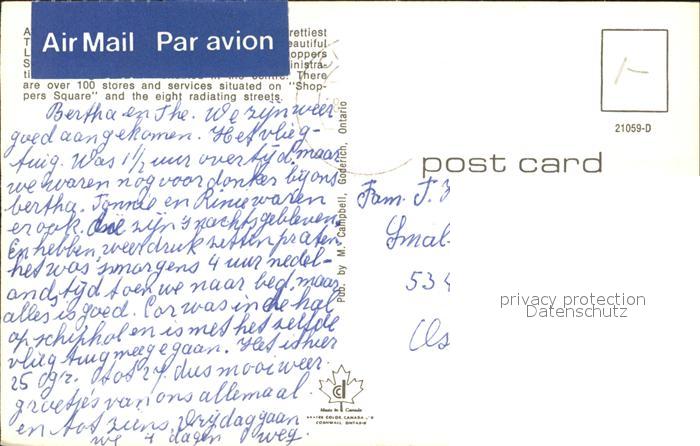 Air Mail Par avion
rettiest
eautiful
oppers
inistra-
in the centre. There
are over 100 stores and services situated on "Shop-
pers Square" and the eight radiating streets.
Bertha en The. We zijn weer
goed aangekomen. Het vlieg-
tuig. Was 1½ uur over tijd, maar
we waren nog voor donker bij ons
bertha. Tonnie en Rinie waren
er ook. die zijn snachts gebleven.
En hebben weer druk zetten praten
het was smorgens 4 uur nedel-
ands tijd toen we naar bed, maar
alles is goed. Cor was in de hal
op schiphol en is met het zelfde
vliegtuig meegegaan. Het is hier
25 gr. tot 29 dus mooi weer.
groetjes van ons allemaal.
en tot ziens. Vrijdag gaan
we 4 dagen weg.
Pub. by M. Campbell, Goderich, Ontario
Made in Canada
CORNWALL ONTARIO
21059-D
post card
Fam. J.
Smal-
534
Os
privacy protection
Datenschutz